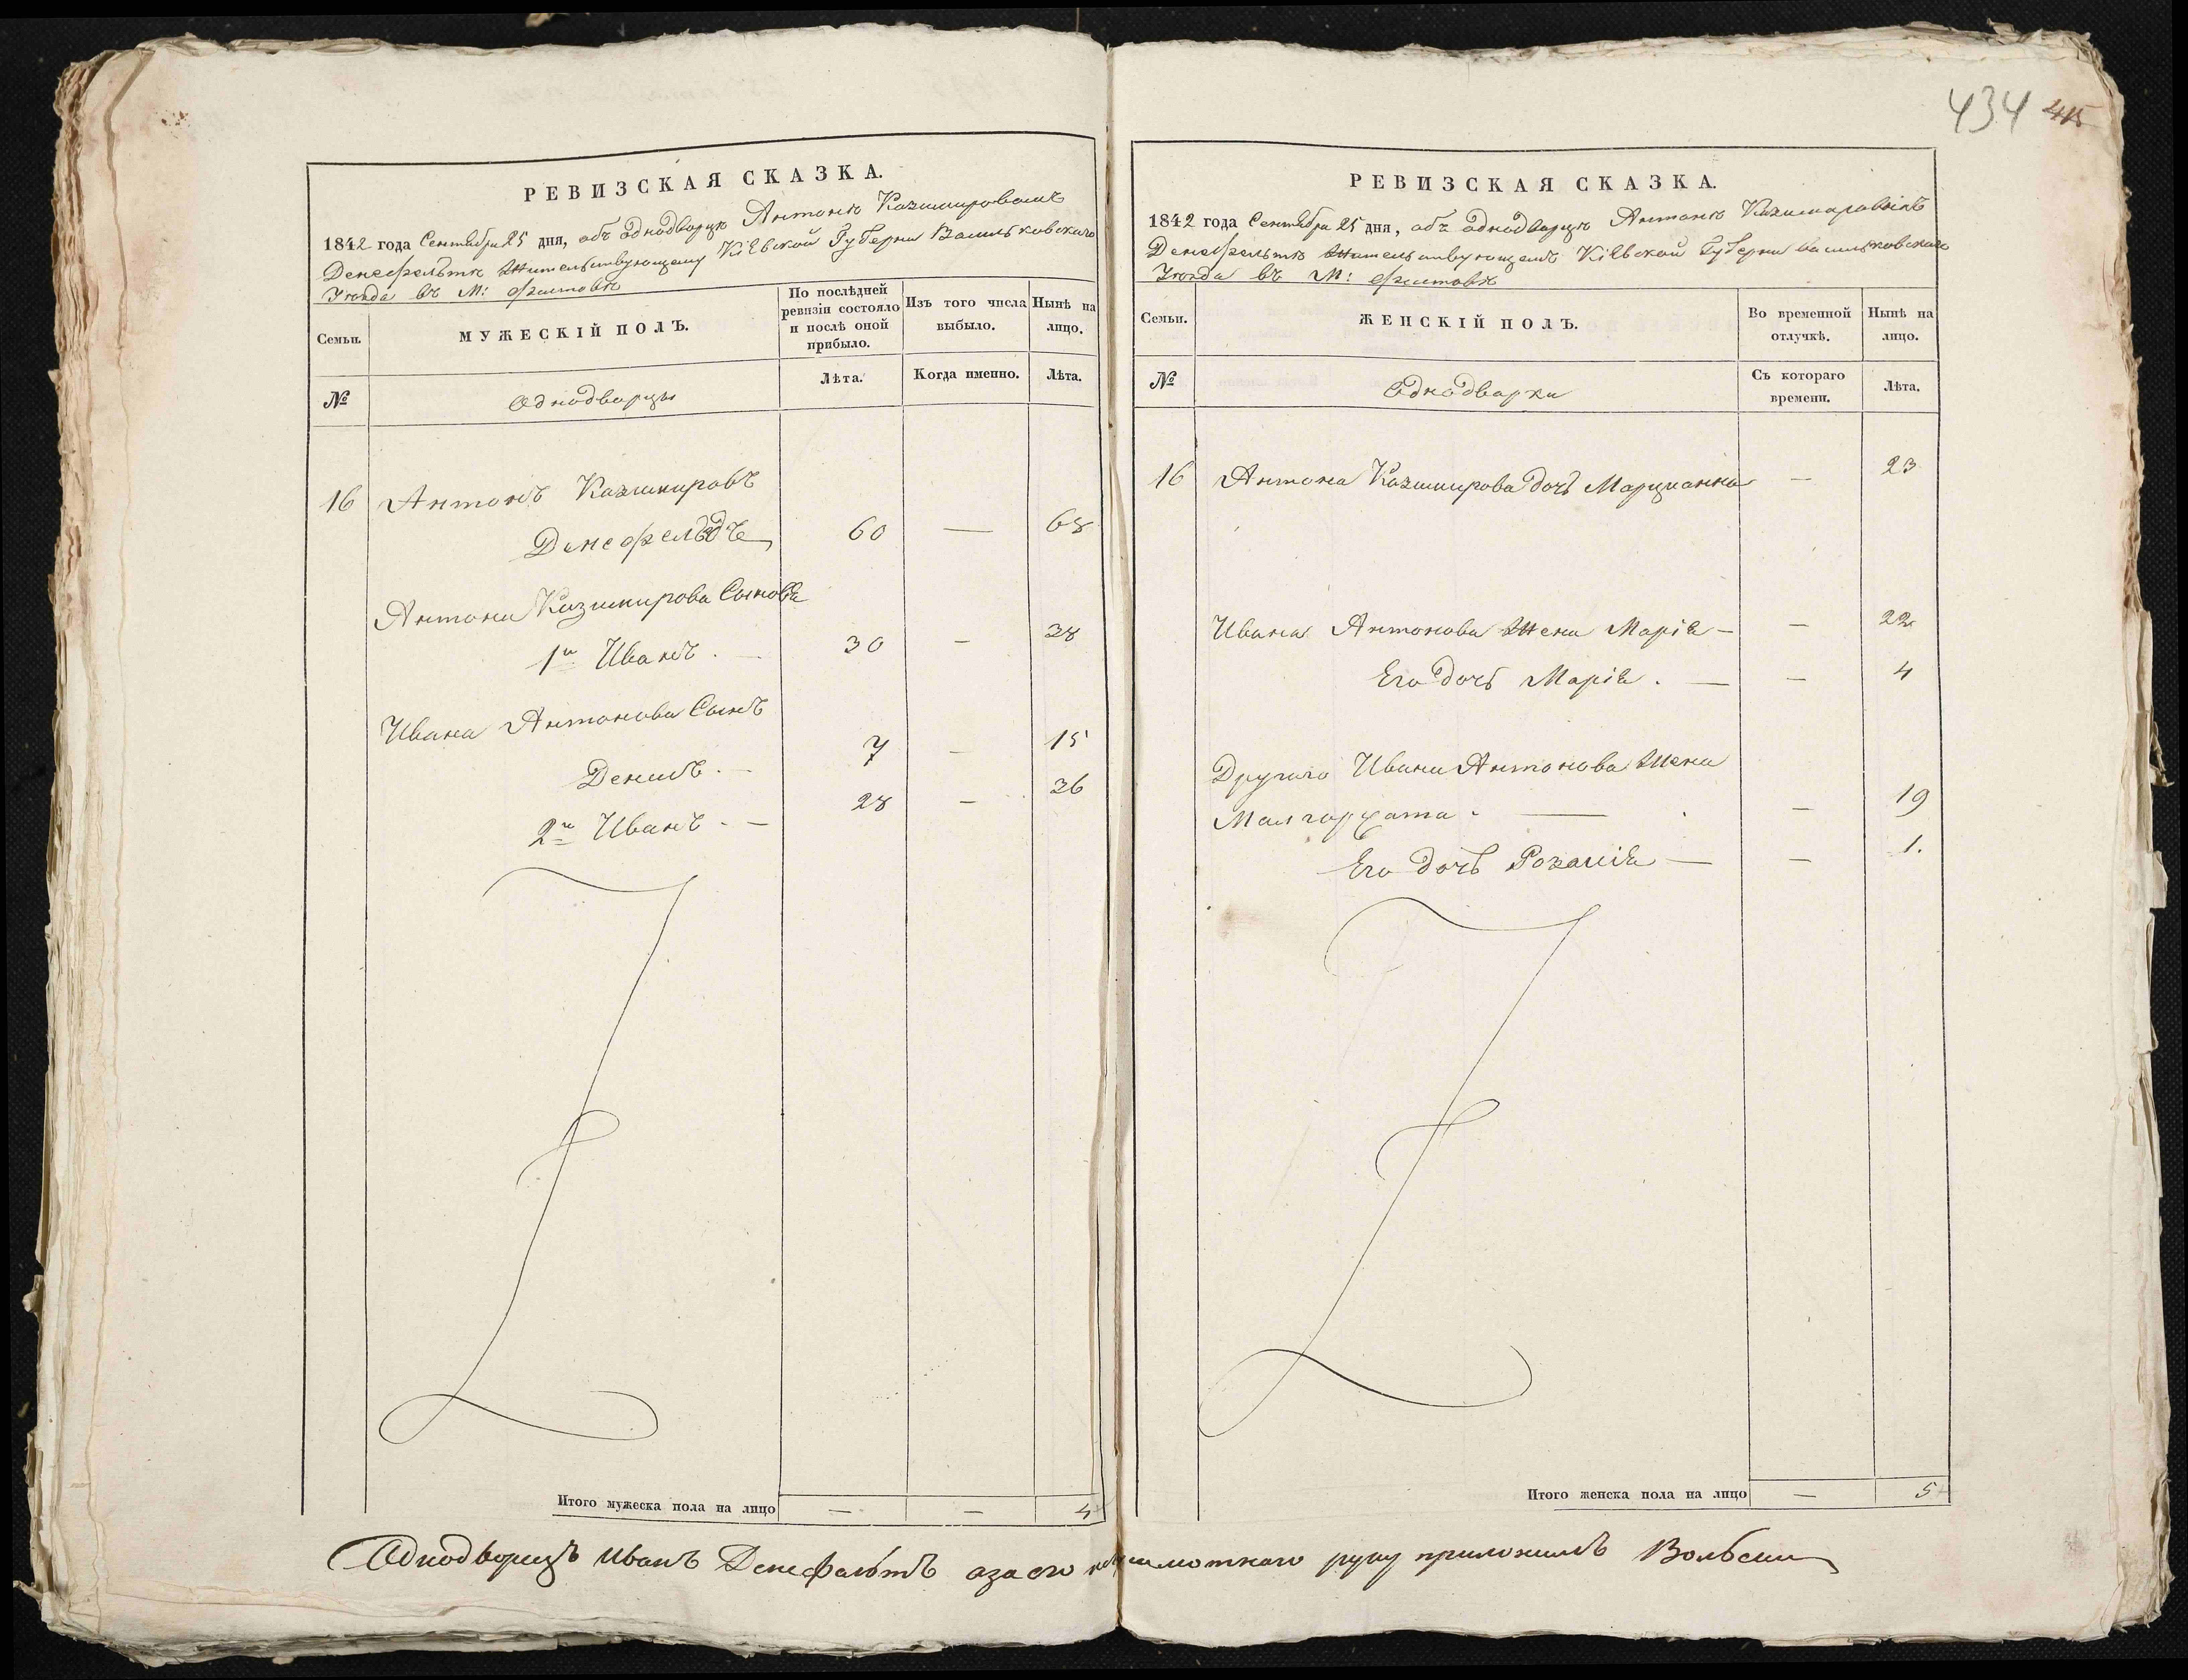 434 415
РЕВИЗСКАЯ СКАЗКА.
1842 года Сентября 25 дня, объ однодворцѣ Антонѣ Казимировомъ
Денефельтѣ жительствующему Кіевской Губерни Васильковскаго
Уѣзда въ М: Фастовѣ
Семьи.
МУЖЕСКІЙ ПОЛЪ.
По послѣдней ревизіи состояло и послѣ оной прибыло.
Изъ того числа выбыло.
Нынѣ на лицо.
№
Однодворцы
Лѣта.
Когда именно.
Лѣта.
16 Антонъ Казимировъ
Денефельдъ 60 — 68
Антона Казимирова Сыновя
1й Иванъ . — 30 — 38
Ивана Антонова Сынъ
Денисъ . — 7 — 15
2й Иванъ . — 28 — 36
Итого мужеска пола на лицо — — 4
РЕВИЗСКАЯ СКАЗКА.
1842 года Сентября 25 дня, объ однодворцѣ Антонѣ
Денефельтѣ Кіевской Губерни васильковскаго
Уѣзда въ М: Фастовѣ
Семьи.
ЖЕНСКІЙ ПОЛЪ.
Во временной отлучкѣ.
Нынѣ на лицо.
№
Однодворки
Съ котораго времени.
Лѣта.
16 Антона Казимирова дочь Марцианна — 23
Ивана Антонова жена Марія — — 22
Его дочь Марія . — — 4
Другаго Ивана Антонова жена
Малгоржата . — — 19
Его дочь Розалія — — 1.
Итого женска пола на лицо — 5
Однодворецъ Иванъ Денефальтъ азаего руку приложилъ